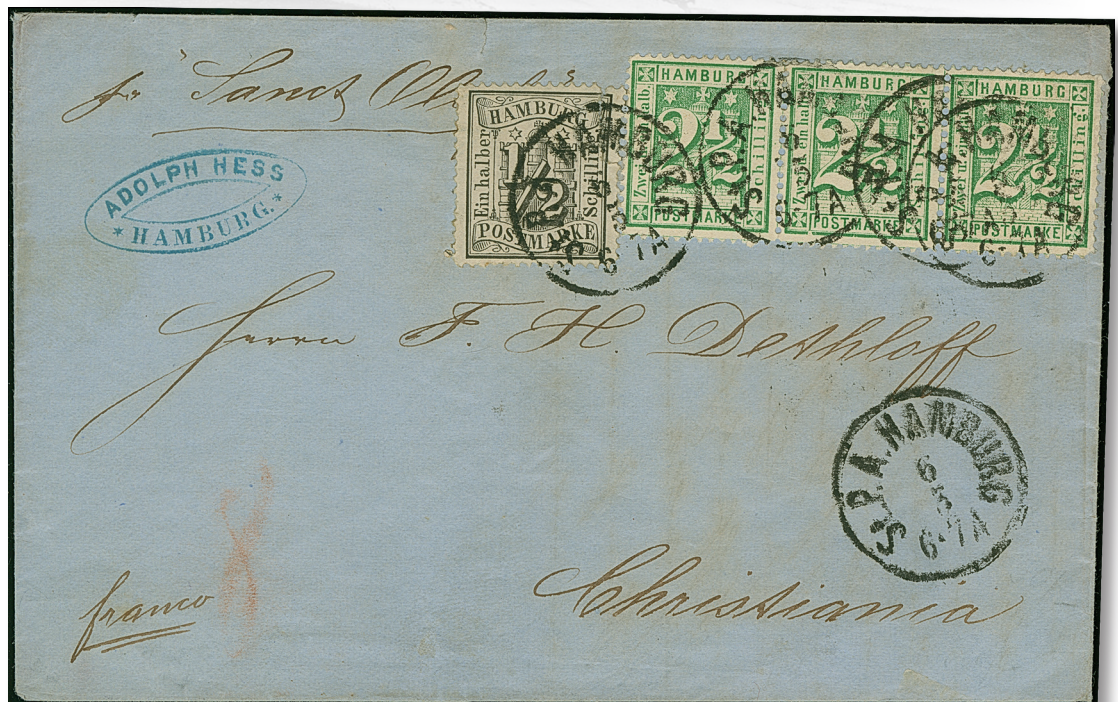 pr "Sanct Ol
ADOLPH HESS
* HAMBURG. *
HAMBURG
Ein halber
Schilling
1/2
POSTMARKE
HAMBURG
Zwei ein halb.
Schilling
2 1/2
POSTMARKE
HAMBURG
Zwei ein halb.
2 1/2
POSTMARKE
HAMBURG
Schilling
2 1/2
POSTMARKE
HAMBURG
6-7A
Herrn F. H. Dethloff
S.P.A. HAMBURG
6
5
6-7A
franco
Christiania